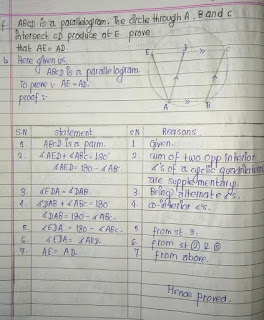 f. ABCD is a parallelogram. The circle through A, B and C
intersect CD produce at E prove
that AE = AD.
b Here given us,
ABCD is a parallelogram.
To prove :- AE = AD.
proof :-
E D C
A B
S.N statement S.N Reasons.
1 ABCD is a parm. 1 Given.
2. ∠AED + ∠ABC = 180° 2 sum of two opp interior
∠AED = 180 - ∠ABC. ∠'s of a cyclic quadrilateral
are supplementary.
3 ∠EDA = ∠DAB. 3 Being alternate ∠s.
4. ∠DAB + ∠ABC = 180 4 co-interior ∠s.
∠DAB = 180 - ∠ABC.
5. ∠EDA = 180 - ∠ABC. 5 from st. 3.
6 ∠EDA = ∠AED. 6. from st (2) & (5)
7 AE = AD. 7 from above.
Hence proved.